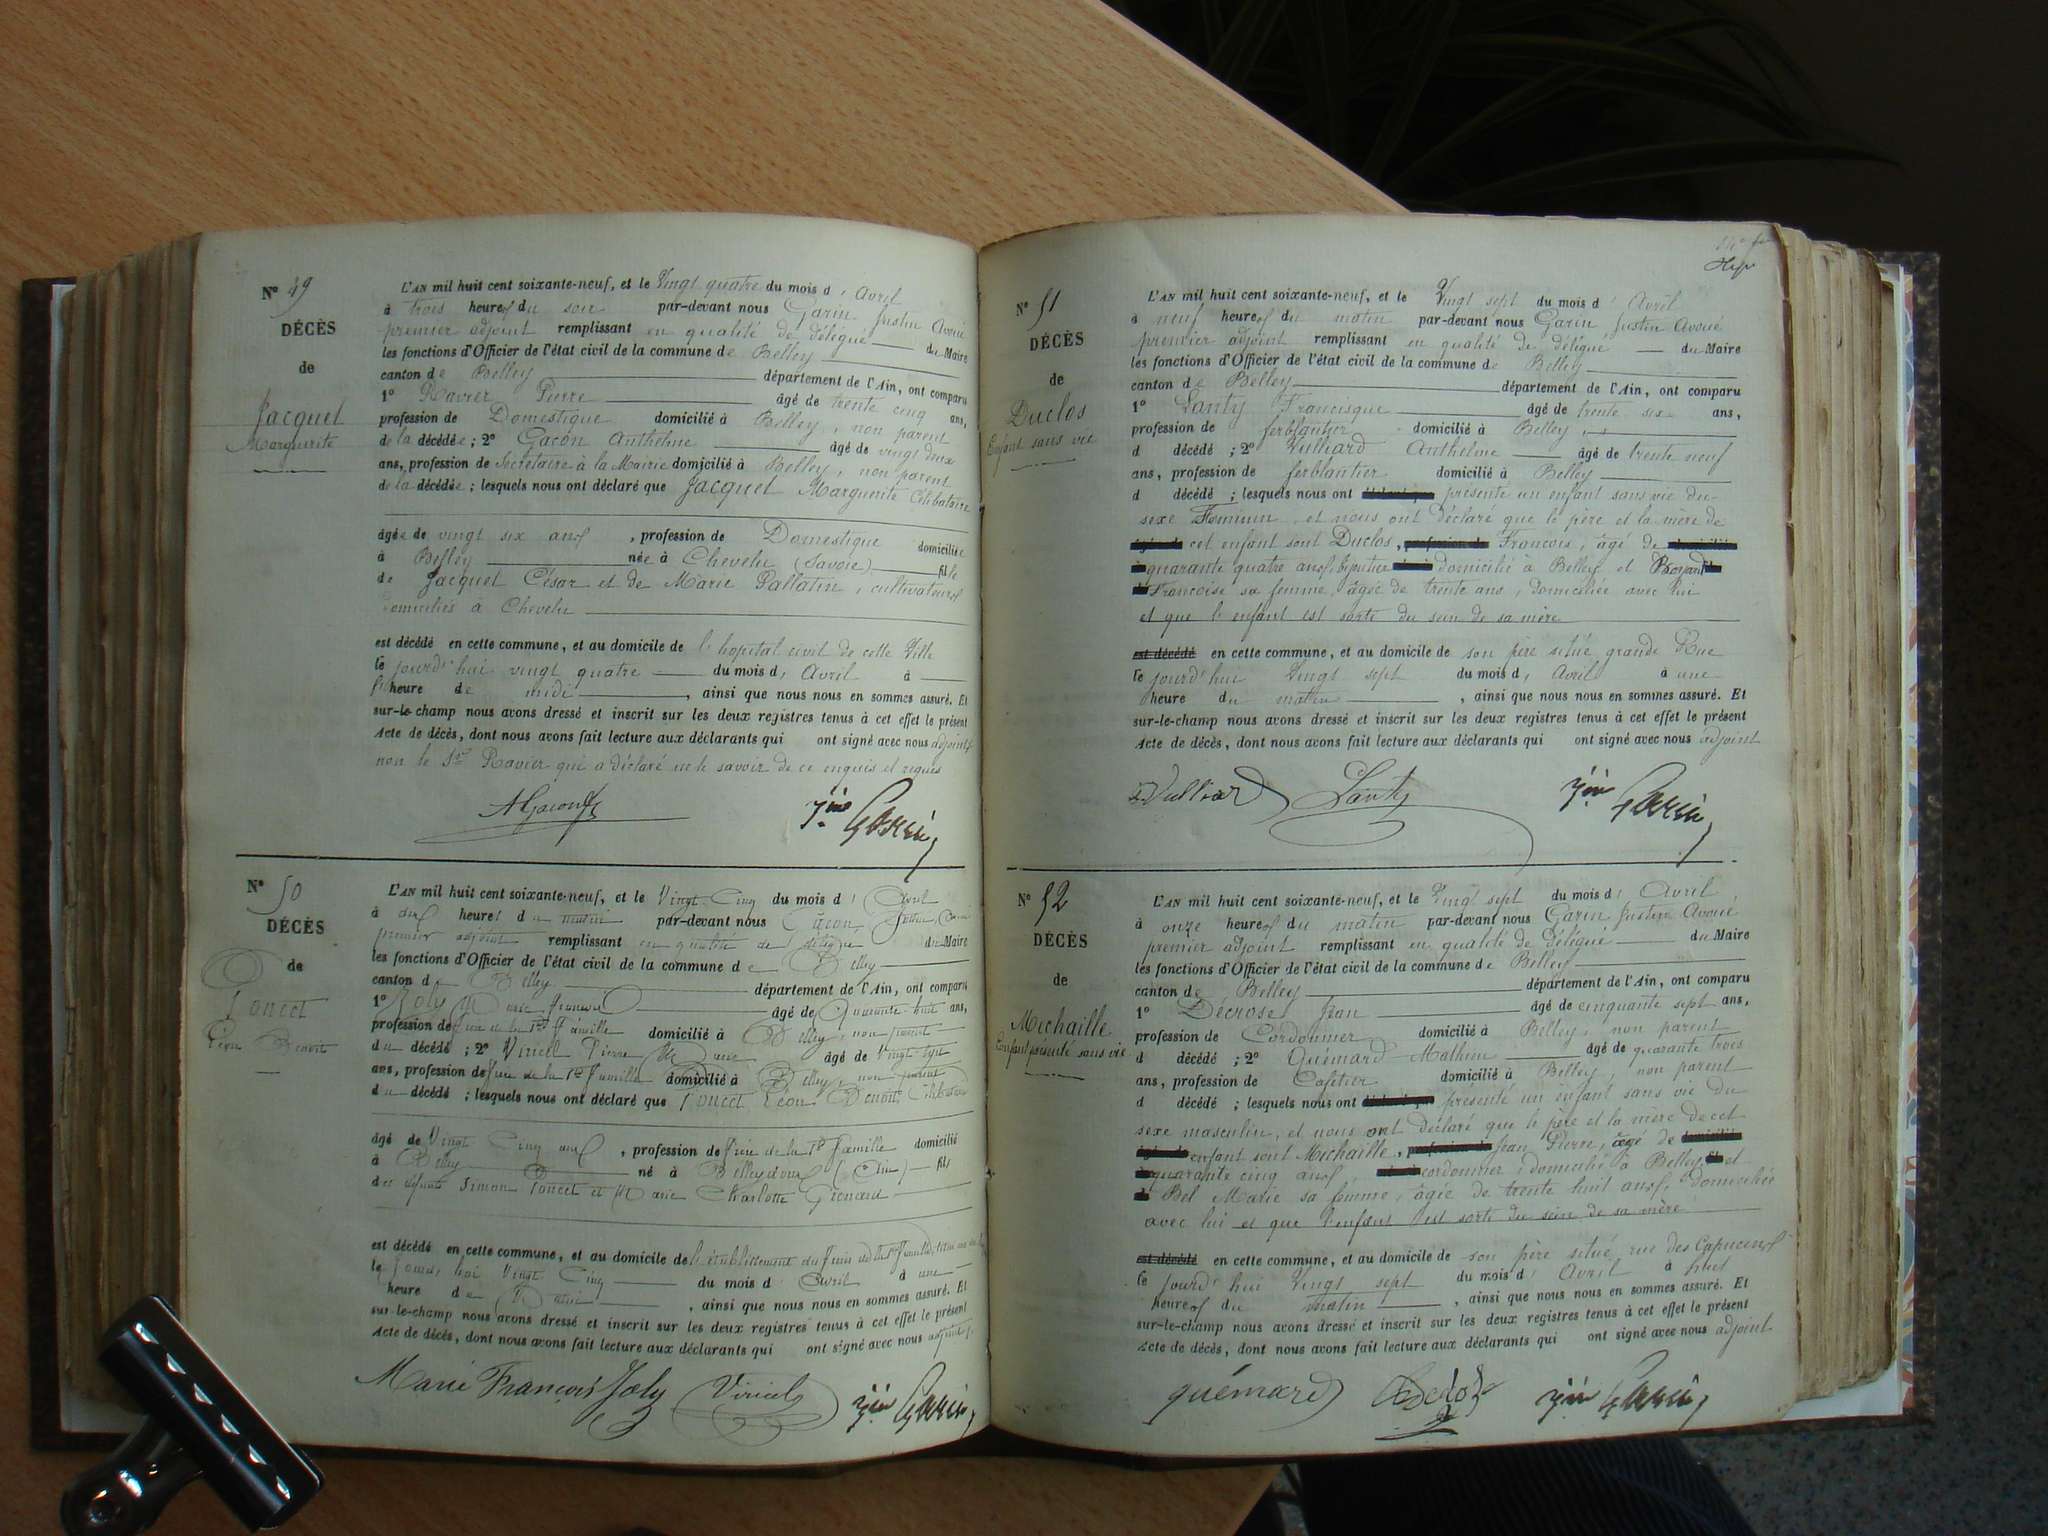 N° 49
DÉCÈS
de
Jacquet
Marguerite
L'AN mil huit cent soixante-neuf, et le Vingt quatre du mois d' Avril
à trois heures du soir par-devant nous Garin Justin Avoué
premier adjoint remplissant en qualité de délégué du Maire
les fonctions d'Officier de l'état civil de la commune de Belley
canton de Belley département de l'Ain, ont comparu
1° Ravier Pierre âgé de trente cinq ans,
profession de Domestique domicilié à Belley, non parent
de la décédée ; 2° Gacon Anthelme âgé de vingt deux
ans, profession de Secrétaire à la Mairie domicilié à Belley, non parent
de la décédée ; lesquels nous ont déclaré que Jacquet Marguerite Célibataire
âgée de vingt six ans, profession de Domestique domiciliée
à Belley née à Chevelu (Savoie) fille
de Jacquet César et de Marie Pallatin, cultivateurs
domiciliés à Chevelu
est décédé en cette commune, et au domicile de l'hopital civil de cette Ville
le jourd'hui vingt quatre du mois d' Avril à
heure de midi, ainsi que nous nous en sommes assuré. Et
sur-le-champ nous avons dressé et inscrit sur les deux registres tenus à cet effet le présent
Acte de décès, dont nous avons fait lecture aux déclarants qui ont signé avec nous adjoint
non le Sr Ravier qui a déclaré ne le savoir de ce enquis et requis
AGacon
Jin Garin
N° 50
DÉCÈS
de
Poncet
Léon Benoit
L'AN mil huit cent soixante-neuf, et le Vingt Cinq du mois d' Avril
à dix heures du matin par-devant nous Garin Justin, Avoué
premier adjoint remplissant en qualité de délégué du Maire
les fonctions d'Officier de l'état civil de la commune de Belley
canton de Belley département de l'Ain, ont comparu
1° Joly Marie François âgé de Quarante huit ans,
profession de frère de la Ste Famille domicilié à Belley, non parent
du décédé ; 2° Viricel Pierre Marie âgé de Vingt sept
ans, profession de frère de la Ste Famille domicilié à Belley, non parent
du décédé ; lesquels nous ont déclaré que Poncet Léon Benoit Célibataire
âgé de Vingt Cinq ans, profession de frère de la Ste Famille domicilié
à Belley né à Belleydoux (Ain) fils
des défunts Simon Poncet et Marie Charlotte Grenard
est décédé en cette commune, et au domicile de l'établissement des frères de la Ste Famille
le jourd'hui Vingt Cinq du mois d' Avril à une
heure du Matin, ainsi que nous nous en sommes assuré. Et
sur-le-champ nous avons dressé et inscrit sur les deux registres tenus à cet effet le présent
Acte de décès, dont nous avons fait lecture aux déclarants qui ont signé avec nous adjoint
Marie François Joly Viricel Jin Garin
N° 51
DÉCÈS
de
Duclos
Enfant sans vie
L'AN mil huit cent soixante-neuf, et le Vingt sept du mois d' Avril
à neuf heures du matin par-devant nous Garin Justin Avoué
premier adjoint remplissant en qualité de délégué du Maire
les fonctions d'Officier de l'état civil de la commune de Belley
canton de Belley département de l'Ain, ont comparu
1° Lanty Francisque âgé de trente six ans,
profession de ferblantier domicilié à Belley,
d décédé ; 2° Vulliard Anthelme âgé de trente neuf
ans, profession de ferblantier domicilié à Belley
d décédé ; lesquels nous ont présenté un enfant sans vie du
sexe Féminin, et nous ont déclaré que le père et la mère de
cet enfant sont Duclos, François, âgé de
quarante quatre ans, bijoutier domicilié à Belley et
Françoise sa femme, âgée de trente ans, domiciliée avec lui
et que l'enfant est sorti du sein de sa mère
est décédé en cette commune, et au domicile de son père situé grande Rue
le jourd'hui Vingt sept du mois d' Avril à une
heure du matin, ainsi que nous nous en sommes assuré. Et
sur-le-champ nous avons dressé et inscrit sur les deux registres tenus à cet effet le présent
Acte de décès, dont nous avons fait lecture aux déclarants qui ont signé avec nous adjoint
Vulliard Lanty Jin Garin
N° 52
DÉCÈS
de
Michaille
Enfant présenté sans vie
L'AN mil huit cent soixante-neuf, et le Vingt sept du mois d' Avril
à onze heures du matin par-devant nous Garin Justin Avoué
premier adjoint remplissant en qualité de délégué du Maire
les fonctions d'Officier de l'état civil de la commune de Belley
canton de Belley département de l'Ain, ont comparu
1° Décrose Jean âgé de cinquante sept ans,
profession de Cordonnier domicilié à Belley, non parent
d décédé ; 2° Quémard Mathieu âgé de quarante trois
ans, profession de Cafetier domicilié à Belley, non parent
d décédé ; lesquels nous ont présenté un enfant sans vie du
sexe masculin, et nous ont déclaré que le père et la mère de cet
enfant sont Michaille, Jean Pierre, âgé de
quarante cinq ans, cordonnier, domicilié à Belley et
Bel Marie sa femme, âgée de trente huit ans, domiciliée
avec lui et que l'enfant est sorti du sein de sa mère
est décédé en cette commune, et au domicile de son père situé rue des Capucins
le jourd'hui Vingt sept du mois d' Avril à huit
heures du matin, ainsi que nous nous en sommes assuré. Et
sur-le-champ nous avons dressé et inscrit sur les deux registres tenus à cet effet le présent
Acte de décès, dont nous avons fait lecture aux déclarants qui ont signé avec nous adjoint
quémard Jin Garin